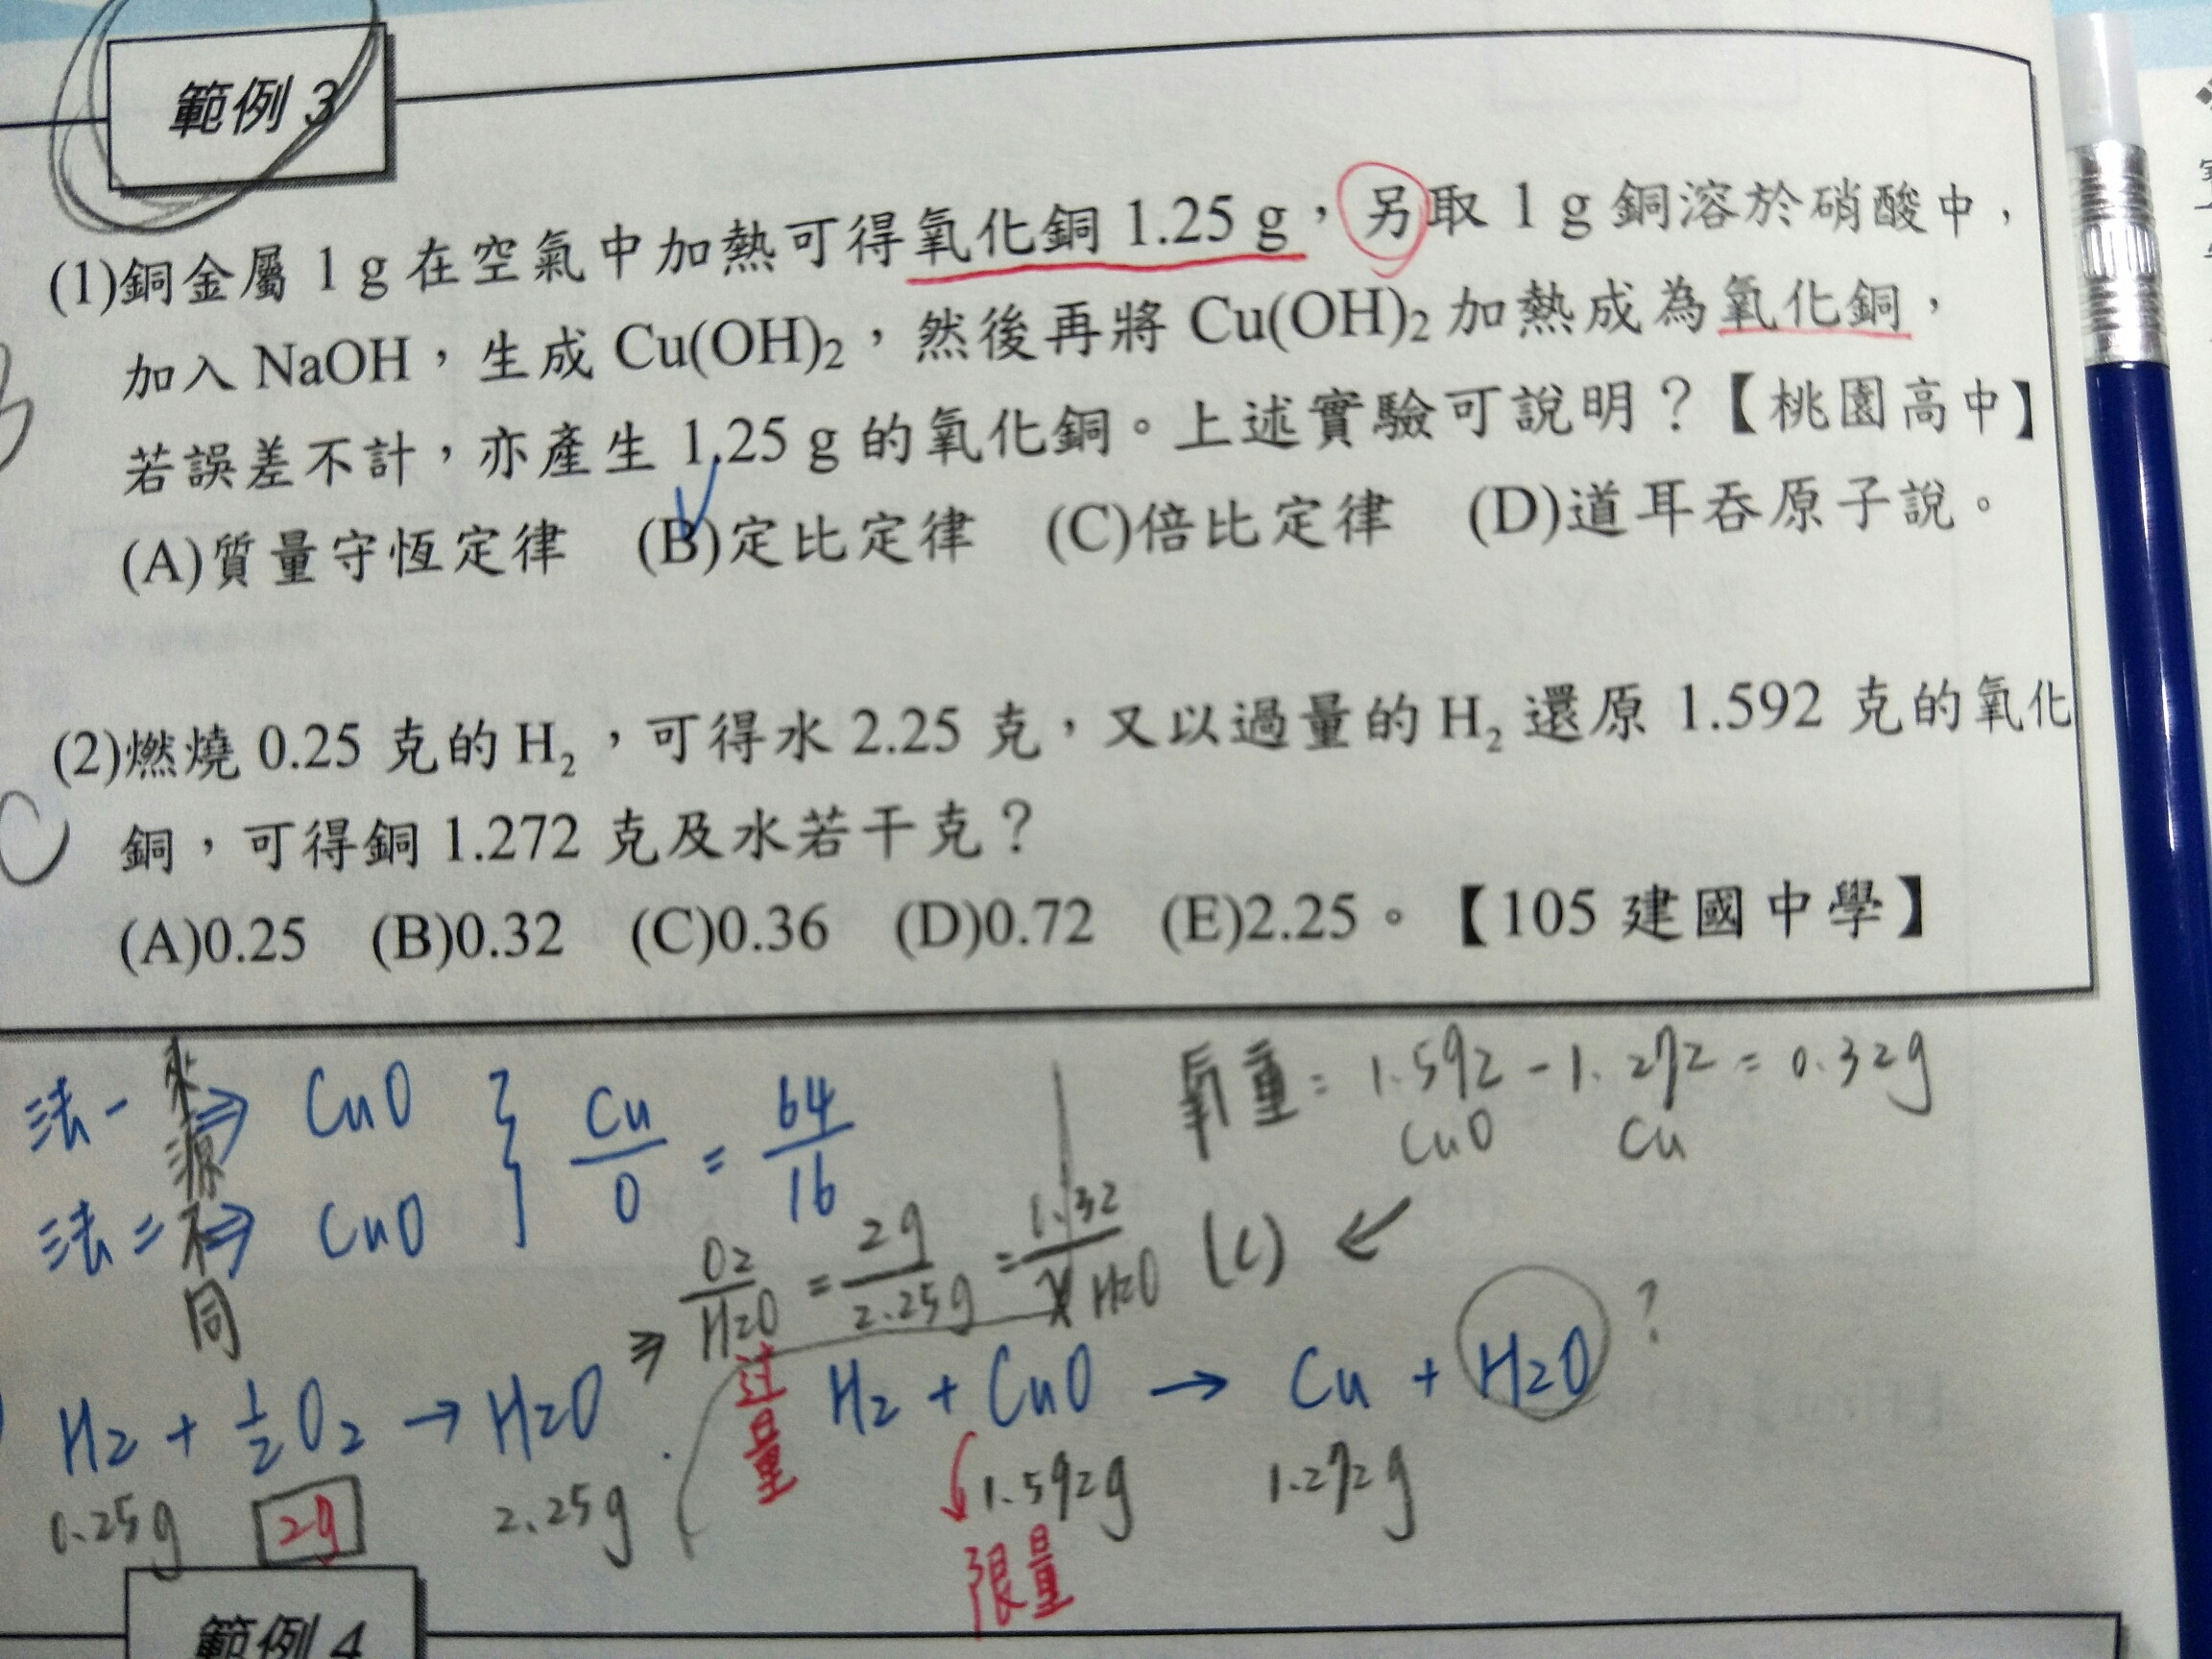 範例 3
(1)銅金屬 1 g 在空氣中加熱可得氧化銅 1.25 g，另取 1 g 銅溶於硝酸中，
加入 NaOH，生成 Cu(OH)₂，然後再將 Cu(OH)₂ 加熱成為氧化銅，
若誤差不計，亦產生 1.25 g 的氧化銅。上述實驗可說明？【桃園高中】
(A)質量守恆定律 (B)定比定律 (C)倍比定律 (D)道耳吞原子說。
(2)燃燒 0.25 克的 H₂，可得水 2.25 克，又以過量的 H₂ 還原 1.592 克的氧化
銅，可得銅 1.272 克及水若干克？
(A)0.25 (B)0.32 (C)0.36 (D)0.72 (E)2.25。【105 建國中學】
氧重 = 1.592 - 1.272 = 0.32g
CuO Cu
法一 ⇒ CuO
法二 ⇒ CuO
Cu/O = 64/16
來源不同
O₂/H₂O = 2g/2.25g = 1.32/X H₂O (C)
H₂ + ½O₂ → H₂O
0.25g 2g 2.25g
过量 H₂ + CuO → Cu + H₂O ?
1.592g 1.272g
限量
範例 4